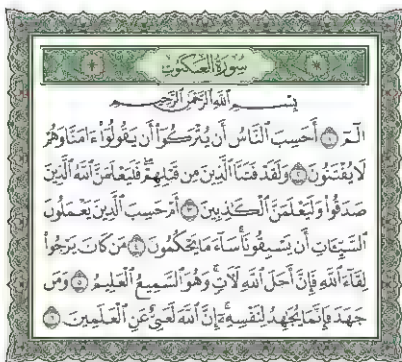 سورة العنكبوت
بسم الله الرحمن الرحيم
الٓمٓ ١ أَحَسِبَ ٱلنَّاسُ أَن يُتْرَكُوٓا۟ أَن يَقُولُوٓا۟ ءَامَنَّا وَهُمْ
لَا يُفْتَنُونَ ٢ وَلَقَدْ فَتَنَّا ٱلَّذِينَ مِن قَبْلِهِمْ ۖ فَلَيَعْلَمَنَّ ٱللَّهُ ٱلَّذِينَ
صَدَقُوا۟ وَلَيَعْلَمَنَّ ٱلْكَٰذِبِينَ ٣ أَمْ حَسِبَ ٱلَّذِينَ يَعْمَلُونَ
ٱلسَّيِّـَٔاتِ أَن يَسْبِقُونَا ۚ سَآءَ مَا يَحْكُمُونَ ٤ مَن كَانَ يَرْجُوا۟
لِقَآءَ ٱللَّهِ فَإِنَّ أَجَلَ ٱللَّهِ لَءَاتٍ ۚ وَهُوَ ٱلسَّمِيعُ ٱلْعَلِيمُ ٥ وَمَن
جَٰهَدَ فَإِنَّمَا يُجَٰهِدُ لِنَفْسِهِۦٓ ۚ إِنَّ ٱللَّهَ لَغَنِىٌّ عَنِ ٱلْعَٰلَمِينَ ٦